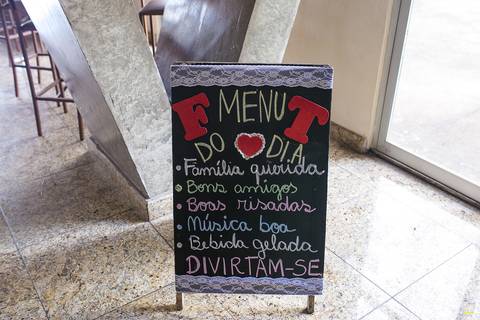 F MENU T
DO DIA
• Família querida
• Bons amigos
• Boas risadas
• Música boa
• Bebida gelada
DIVIRTAM-SE